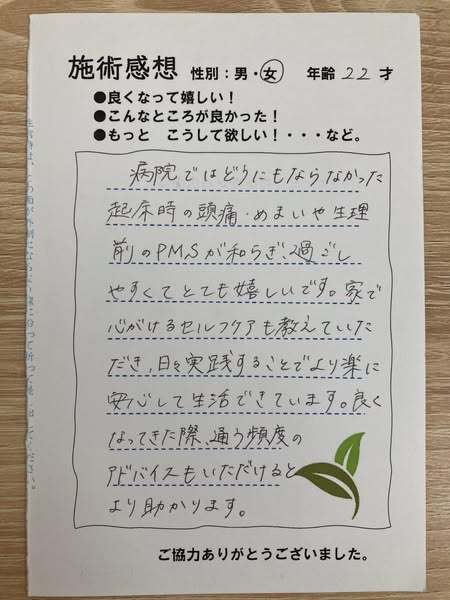 施術感想 性別：男・女 年齢 22 才
●良くなって嬉しい！
●こんなところが良かった！
●もっと　こうして欲しい！・・・など。
病院ではどうにもならなかった
起床時の頭痛・めまいや生理
前のPMSが和らぎ、過ごし
やすくてとても嬉しいです。家で
心がけるセルフケアも教えていた
だき、日々実践することでより楽に
安心して生活できています。良く
なってきた際、通う頻度の
アドバイスもいただけると
より助かります。
ご協力ありがとうございました。